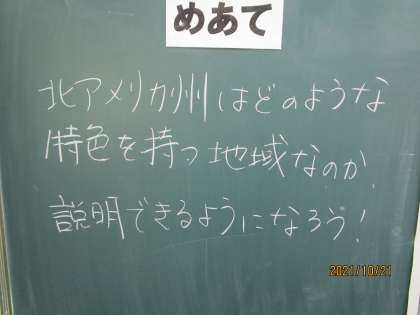 めあて
北アメリカ州はどのような
特色を持つ地域なのか
説明できるようになろう!
2021/10/21